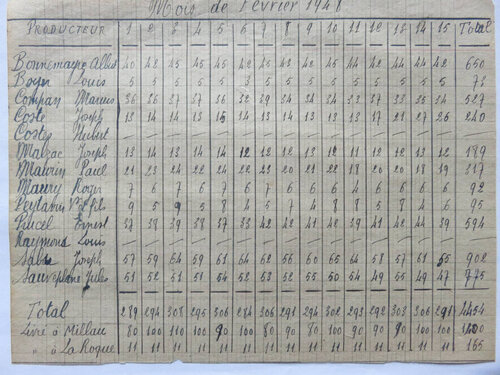 Mois de Fevrier 1948
PRODUCTEUR 1 2 3 4 5 6 7 8 9 10 11 12 13 14 15 Total
Bonnemayre Albert 40 42 45 45 45 42 42 42 650
Boyer Louis 5 5 5 5 5 3 5 5 5 5 5 5 5 5 73
Compan Marius 36 36 37 37 36 32 39 34 34 34 33 37 33 35 34 527
Coste Joseph 13 14 14 13 13 14 13 13 13 13 17 21 27 26 240
Costes Hubert
Malzac Joseph 13 14 13 14 14 12 12 12 13 12 11 12 12 13 12 189
Maurin Paul 21 23 24 22 24 22 22 23 20 21 22 18 20 18 19 317
Maury Roger 7 6 7 6 7 6 7 6 7 6 7 6 4 6 92
Peytavin Vve et fils 9 5 9 5 8 4 5 7 4 8 8 5 8 4 6 95
Pucel Ernest 37 38 39 38 37 33 42 38 42 42 39 41 42 44 39 594
Raymond Louis
Salse Joseph 57 59 64 59 61 64 62 56 60 65 64 58 57 61 55 902
Sauveplane Jules 51 52 51 51 54 52 53 52 55 50 54 49 55 49 47 775
Total 289 294 308 295 306 284 306 291 294 302 293 292 303 306 291 4454
Livré à Millau 80 100 110 100 90 100 80 90 80 100 90 100 90 100 90 1400
" à La Roque 11 11 11 11 11 11 11 11 11 11 11 11 11 11 11 165